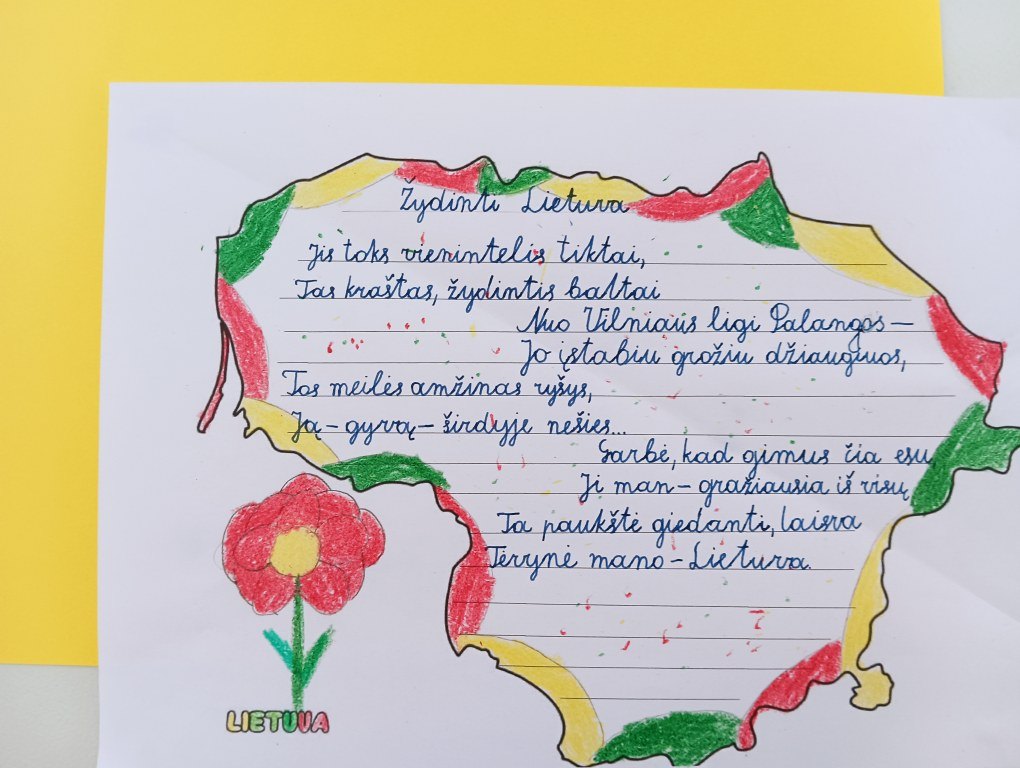 Žydinti Lietuva
Jis toks vienintelis tiktai,
Tas kraštas, žydintis baltai
Nuo Vilniaus ligi Palangos –
Jo įstabiu grožiu džiaugiuos,
Tos meilės amžinas ryšys,
Ją – gyvą – širdyje nešies...
Garbė, kad gimus čia esu,
Ji man – gražiausia iš visų
Ta paukštė giedanti, laisva
Tėvynė mano – Lietuva.
LIETUVA